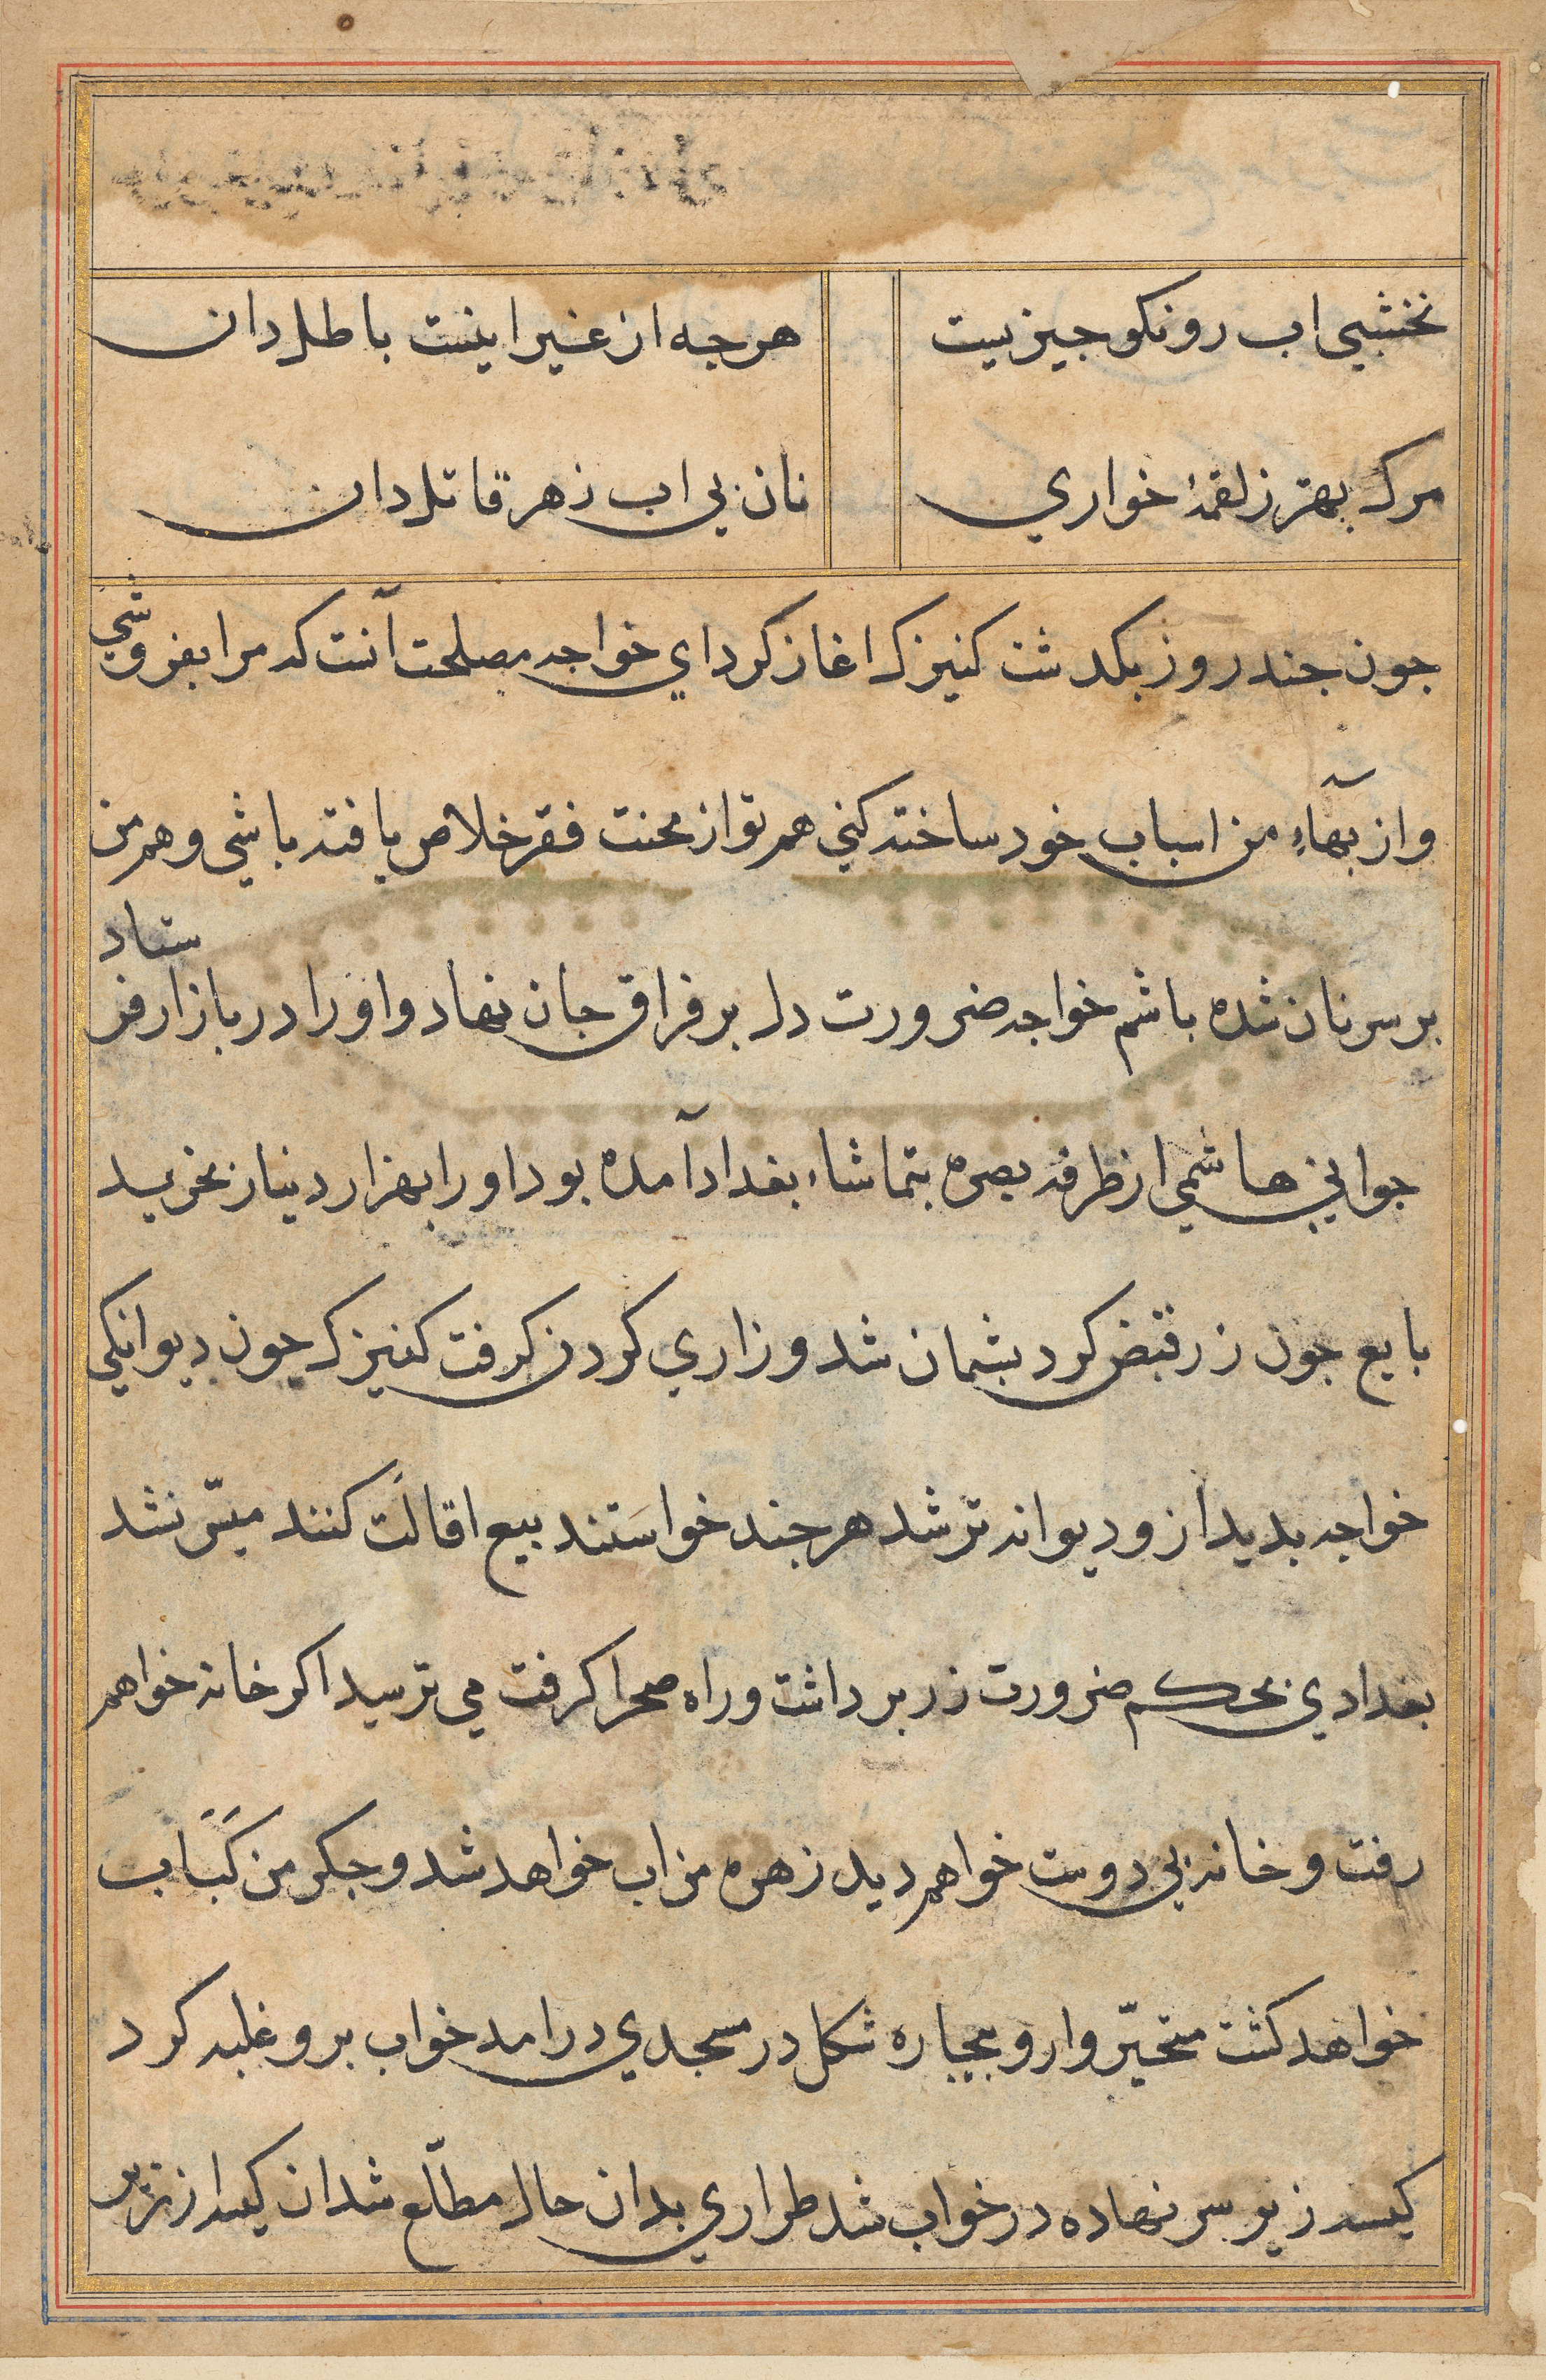 نخشبی اب رو نکو جیزیست
هرجه از غیر اینست باطل دان
مرک بهتر ز لقمهٔ خواری
نان بی اب زهر قاتل دان
جون جند روز بکدشت کنیزک اغاز کرد ای خواجه مصلحت آنست که مرا بفروشی
و از بهآءِ من اسباب خود ساخته کنی هم تو از محنت فقر خلاص یافته باشی و هم من
بر سر نان شده باشم خواجه ضرورت دل بر فراق جان نهاد و اورا در بازار فرستاد
جوانی هاشمی از طرفه بصره بتماشاء بغداد آمده بود اورا بهزار دینار بخرید
بایع جون زر قبض کرد بشمان شد و زاری کردن کرفت کنیزک جون دیوانکی
خواجه بدید ازو دیوانه تر شد هر جند خواستند بیع اقالت کنند میسّر نشد
بغدادی بحکم ضرورت زر برداشت و راه صحرا کرفت می ترسید اکر خانه خواهم
رفت و خانه بی دوست خواهم دید زهره من اب خواهد شد و جکر من کَبَاب
خواهد کشت متحیّروار و بیجاره شکل در مسجدی درامد خواب برو غلبه کرد
کیسه زیر سر نهاده در خواب شد طراری بدان حال مطلّع شد ان کیسه از زیر